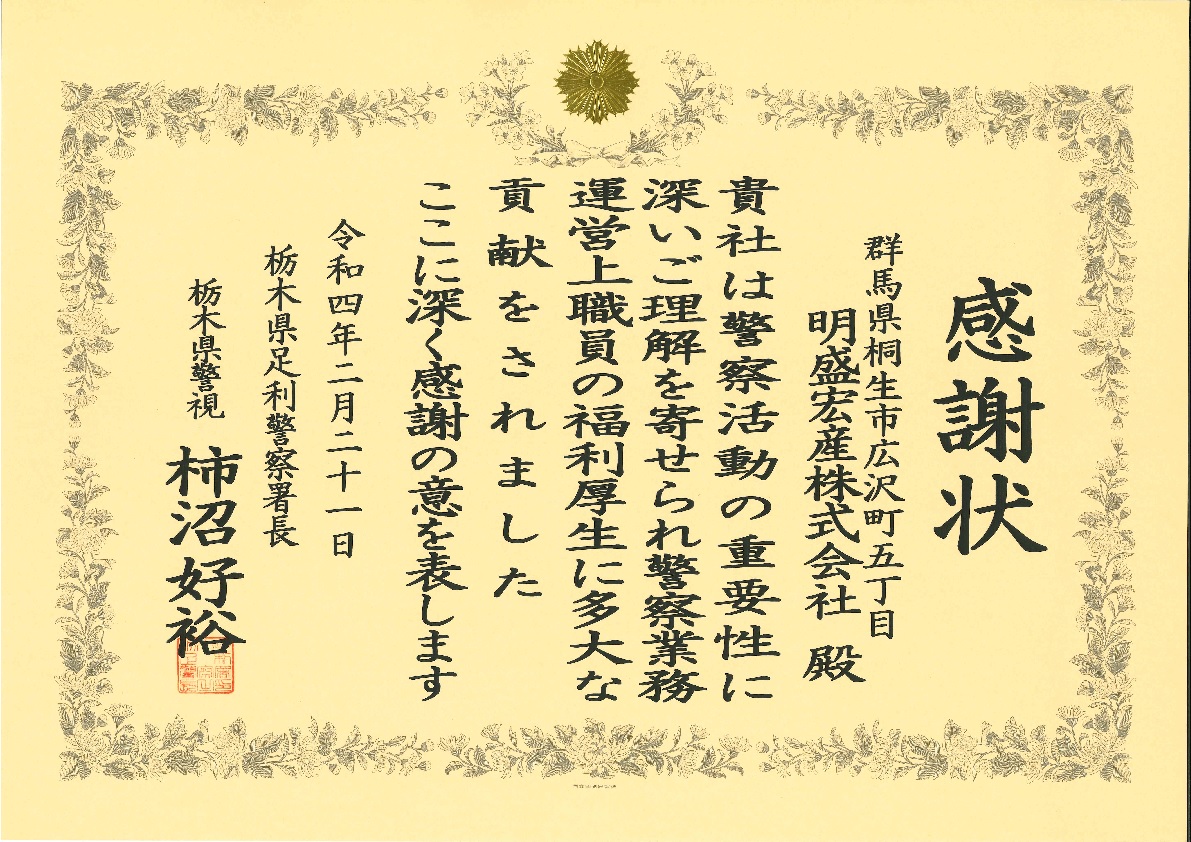 感謝状
群馬県桐生市広沢町五丁目
明盛宏産株式会社 殿
貴社は警察活動の重要性に
深いご理解を寄せられ警察業務
運営上職員の福利厚生に多大な
貢献をされました
ここに深く感謝の意を表します
令和四年二月二十一日
栃木県足利警察署長
栃木県警視 柿沼好裕